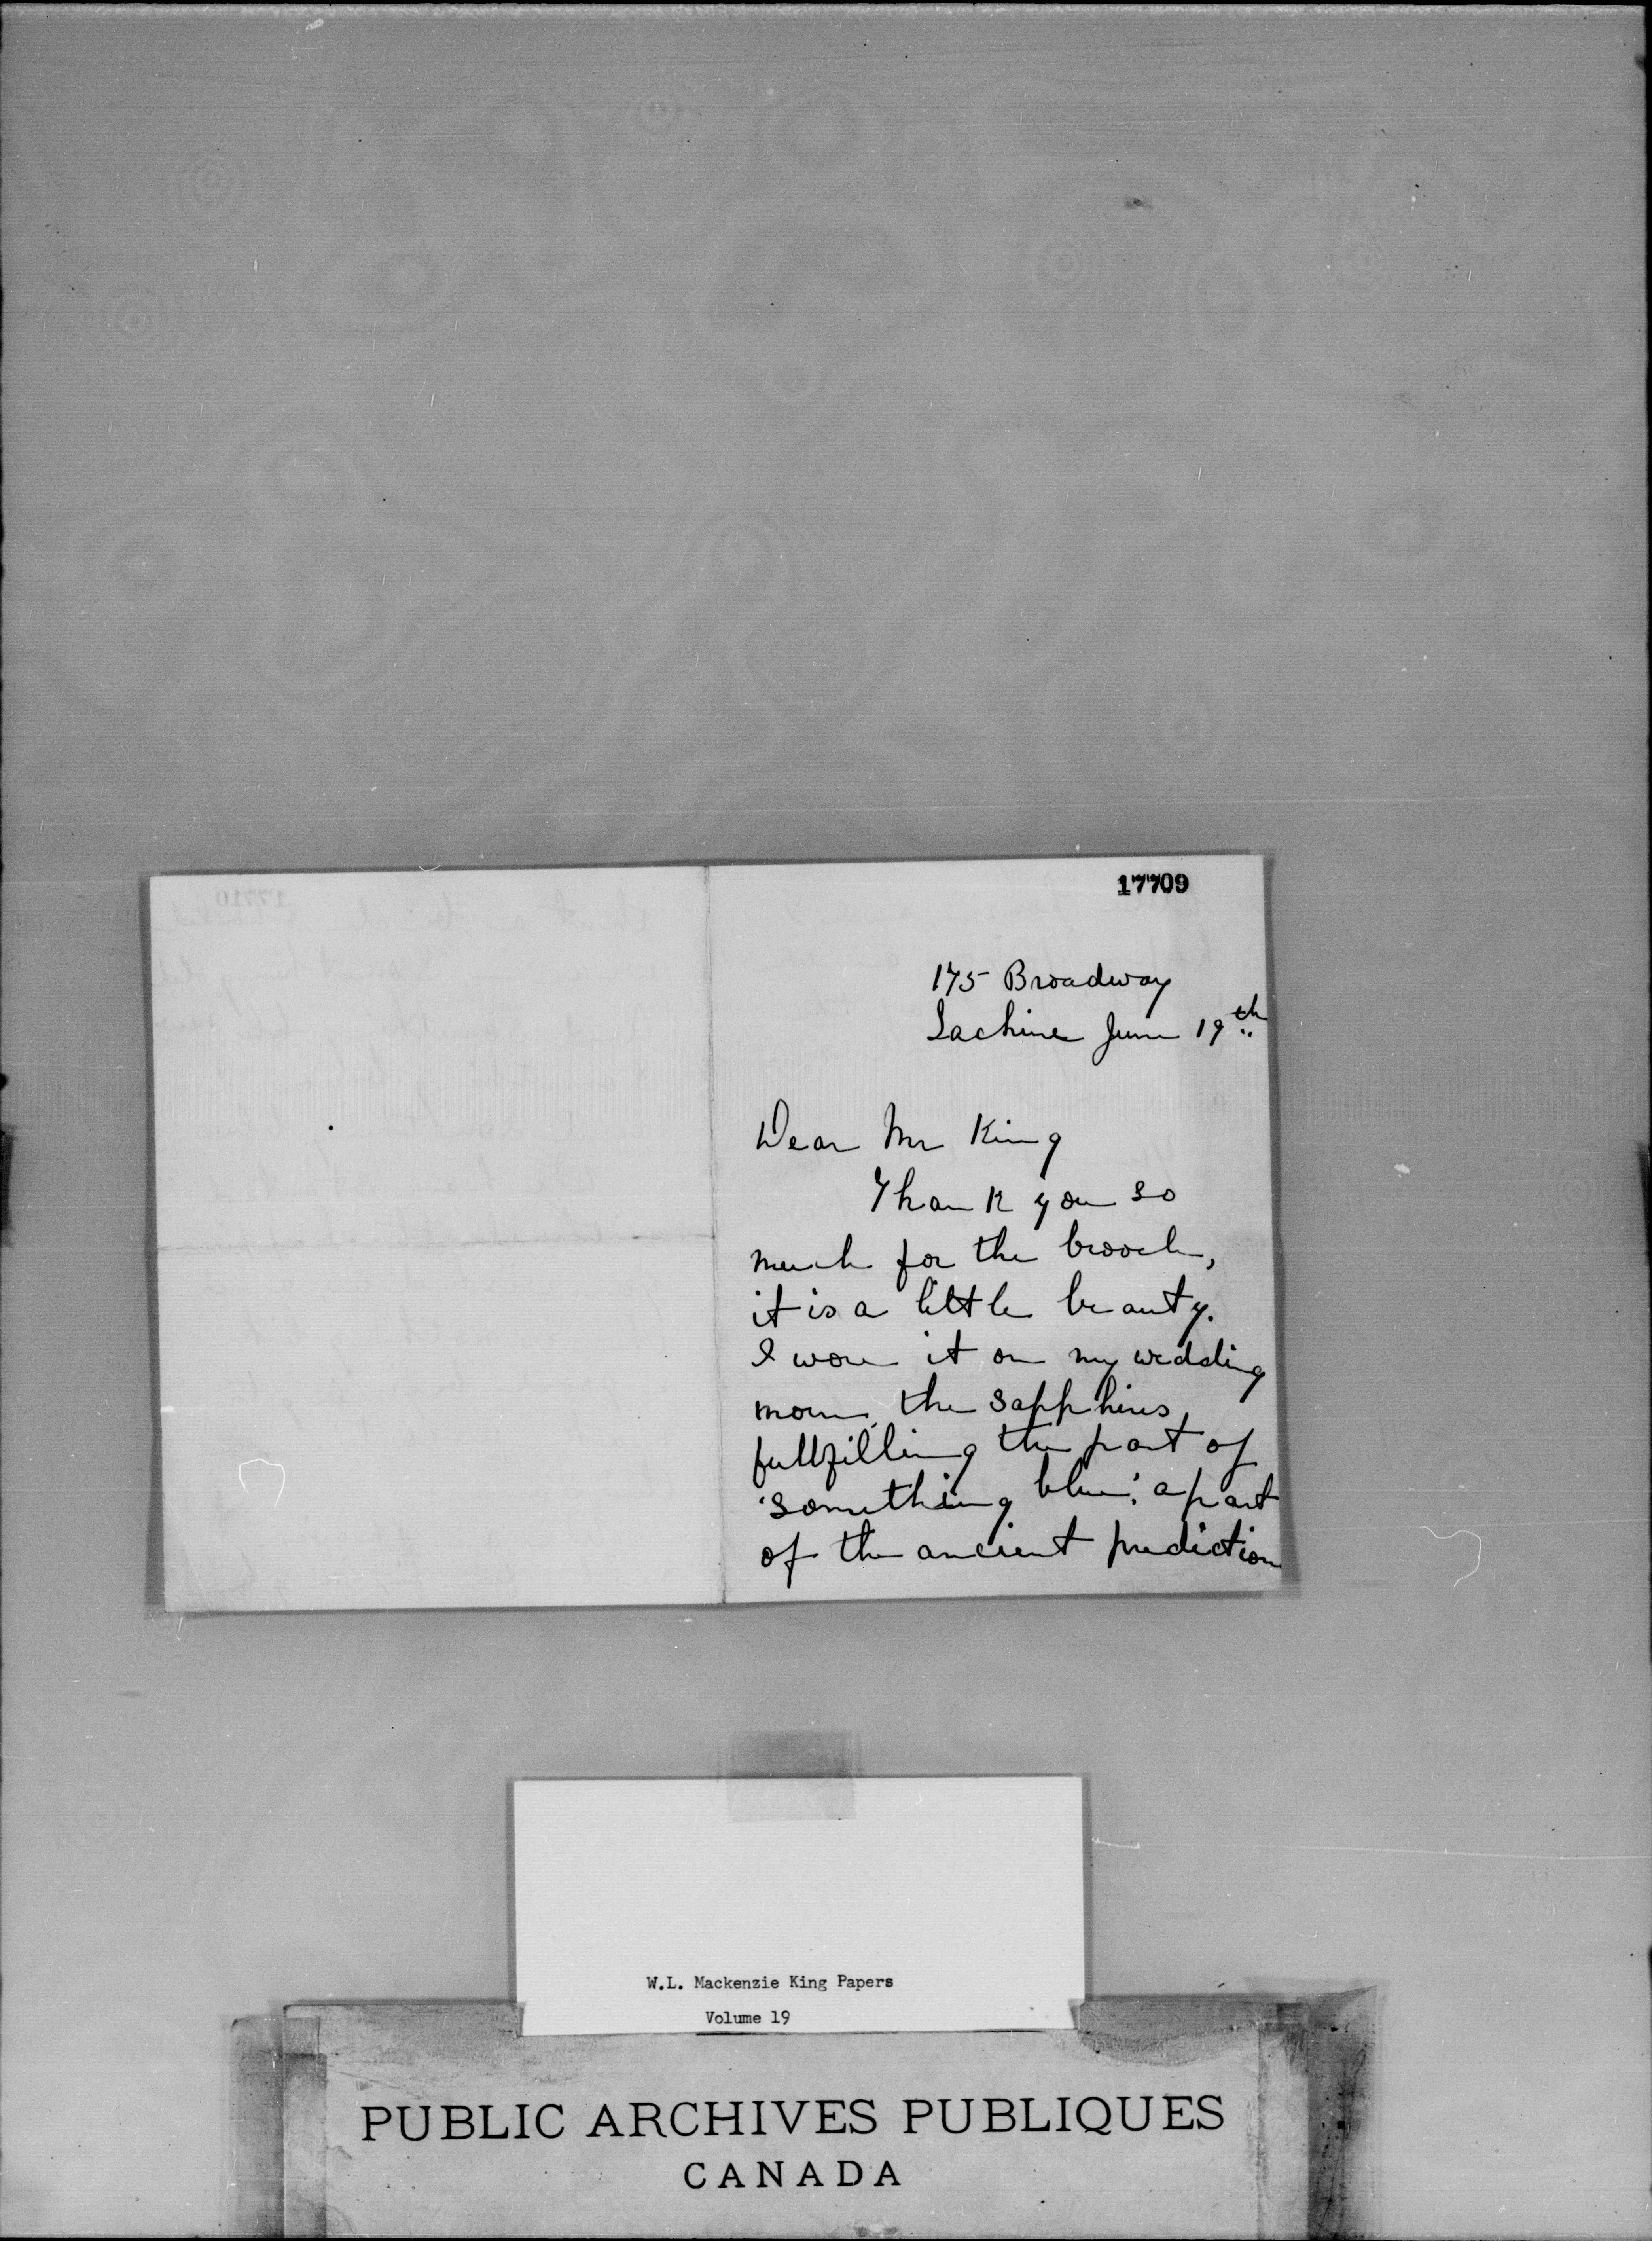 17709
175 Broadway
Lachine June 19th
Dear Mr King
Thank you so
much for the brooch,
it is a little beauty.
I wore it on my wedding
morn, the sapphires,
fullfilling the part of
'something blue', a part
of the ancient prediction
W.L. Mackenzie King Papers
Volume 19
PUBLIC ARCHIVES PUBLIQUES
CANADA